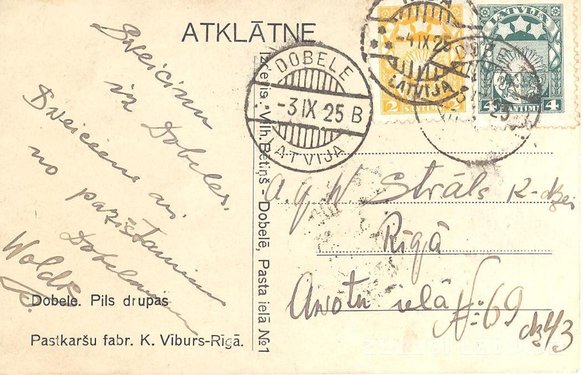 ATKLĀTNE
Sveicinu
iz Dobeles.
Sveiciens arī
no pazīstamiem
Dobelniekiem
Dobele. Pils drupas
Pastkaršu fabr. K. Vīburs-Rīgā.
Izdevis: Vilh. Bētiņš - Dobelē, Pasta ielā № 1
DOBELE
-3 IX 25 B
LATVIJA
-4 IX 25
LATVIJA
LATVIJA
2
4 SANTIMI 4
A. g. W Strāls k-dzei
Rīgā
Avotu ielā № 69
dz 43